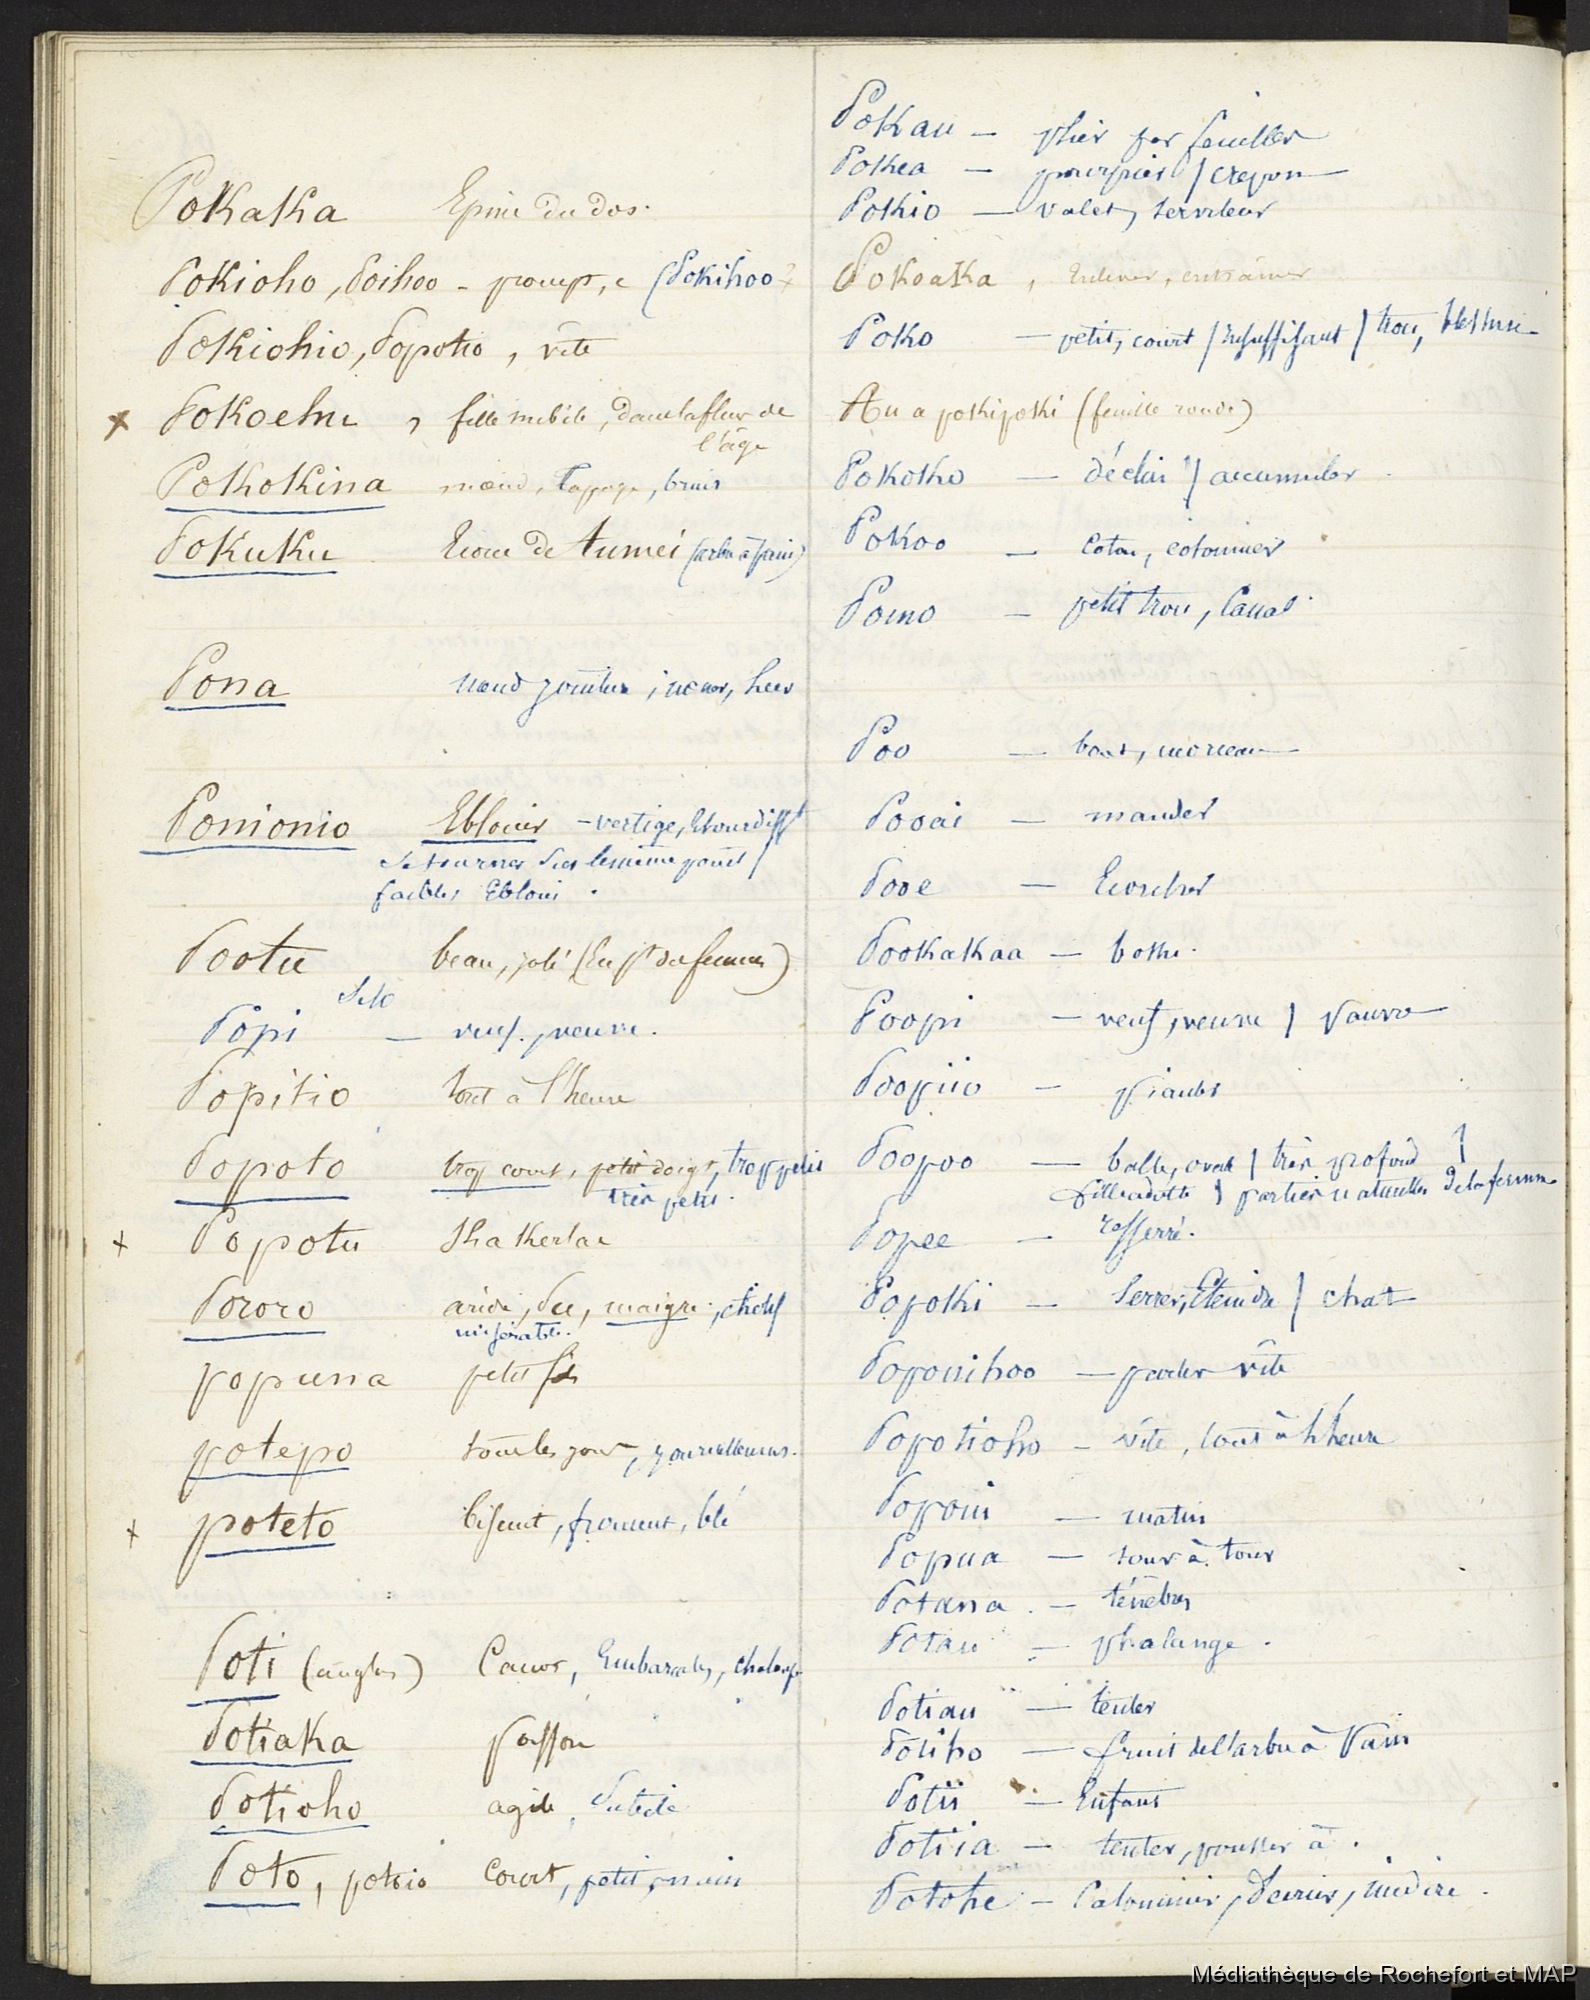 Pokaka Epine du dos.
Pokioho, Poihoo - prompt, e (Pokihoo
Pokiohio, Popotio, vîte
x Pokoehu, fille nubile, dans la fleur de
l'âge
Pokokina nœud, tapage, bruit
Pokuku Ecorce de tumei (arbre à pain)
Pona nœud jointure, nouer, lier
Ponionio Eblouir - vertige, Etourdisst
se tourner sur le même point /
faibles Ebloui.
Pootu beau, joli (En pt des femmes)
Popi - veuf, veuve.
Popitio tout à l'heure
Popoto trop court, petit doigt, trop petit
très petit.
x Popotu Kakerlac
Pororo aride, sec, maigre, chétif
misérable.
popuna petit fils
potepo tous les jours, journellement.
x poteto biscuit, froment, blé
Poti (anglais) Canot, Embarcation, chaloupe
Potiaka poisson
Potioho agile, subtile
Poto, potoio Court, petit, nain
Pokau - plier par feuilles
Pokea - pourpier / crépon
Pokio - valet, serviteur
Pokoaka, Enlever, entraîner
Poko - petit, court / insuffisant / trou, blessure
Au a pokipoki (feuille ronde)
Pokoko - déclai / accumuler
Pokoo - Coton, cotonnier
Pomo - petit trou, Canal.
Poo - bout, morceau
Pooai - mander
Pooe - Ecorcher
Pookakaa - bosse.
Poopi - veuf, veuve / pauvre
Poopiio - piauler
Poopoo - balle, ovale / très profond /
fille adotte / parties naturelles de la femme
Popee - resserré.
Popoki - Serrer, Eteindre / chat
Popouihoo - parler vîte
Popotioho - vîte, tout à l'heure
Popoui - matin
Popua - tour à tour
Potana - ténèbres
Potau - phalange.
Potiau - tenter
Potiho - fruit de l'arbre à Pain
Potii - Enfant
Potiia - tenter, pousser à.
Potohe - Calomnier, médire.
Médiathèque de Rochefort et MAP